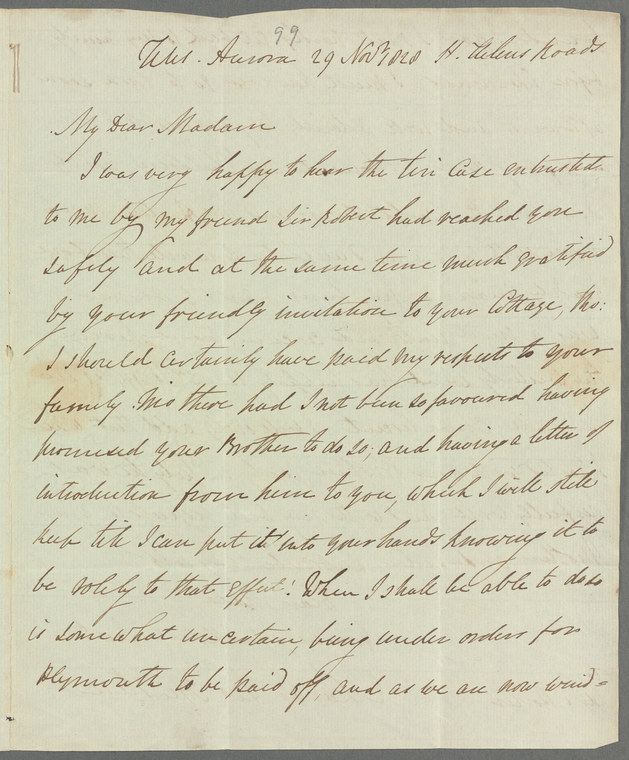 99
Aurora 29 Novr 1828 St. Helens Roads
My Dear Madam
I was very happy to hear the tin case entrusted
to me by my friend Sir Robert had reached you
safely and at the same time much gratified
by your friendly invitation to your Cottage, tho:
I should certainly have paid my respects to your
family there had I not been so favoured having
promised your Brother to do so; and having a letter of
introduction from him to you, which I will still
keep till I can put it into your hands knowing it to
be solely to that effect. When I shall be able to do so
is somewhat uncertain, being under orders for
Plymouth to be paid off, and as we are now wind=